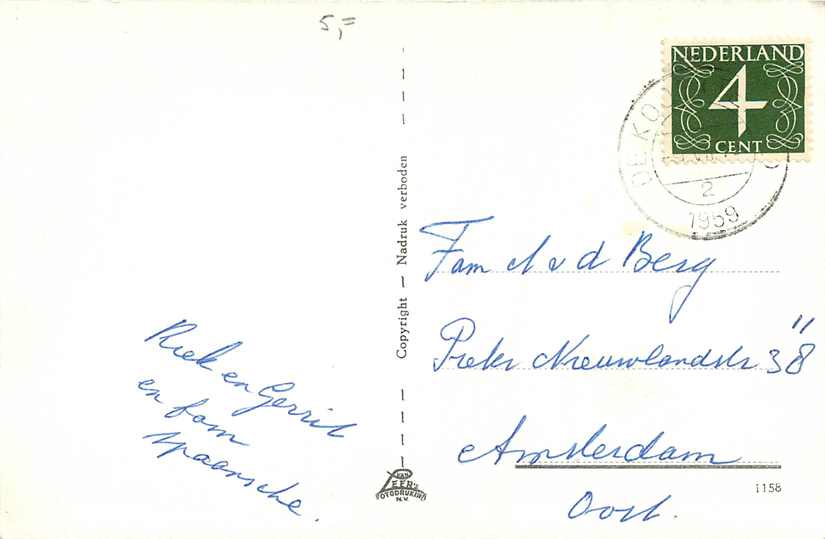 5,=
NEDERLAND
4
CENT
DE KOO
2
1959
Copyright — Nadruk verboden
Fam v d Berg
Pieter Nieuwlandstr 38 "
Amsterdam
Oost.
Riek en Gerrit
en fam
Spaansche.
VAN
LEER'S
FOTODRUKIND
N.V.
1158